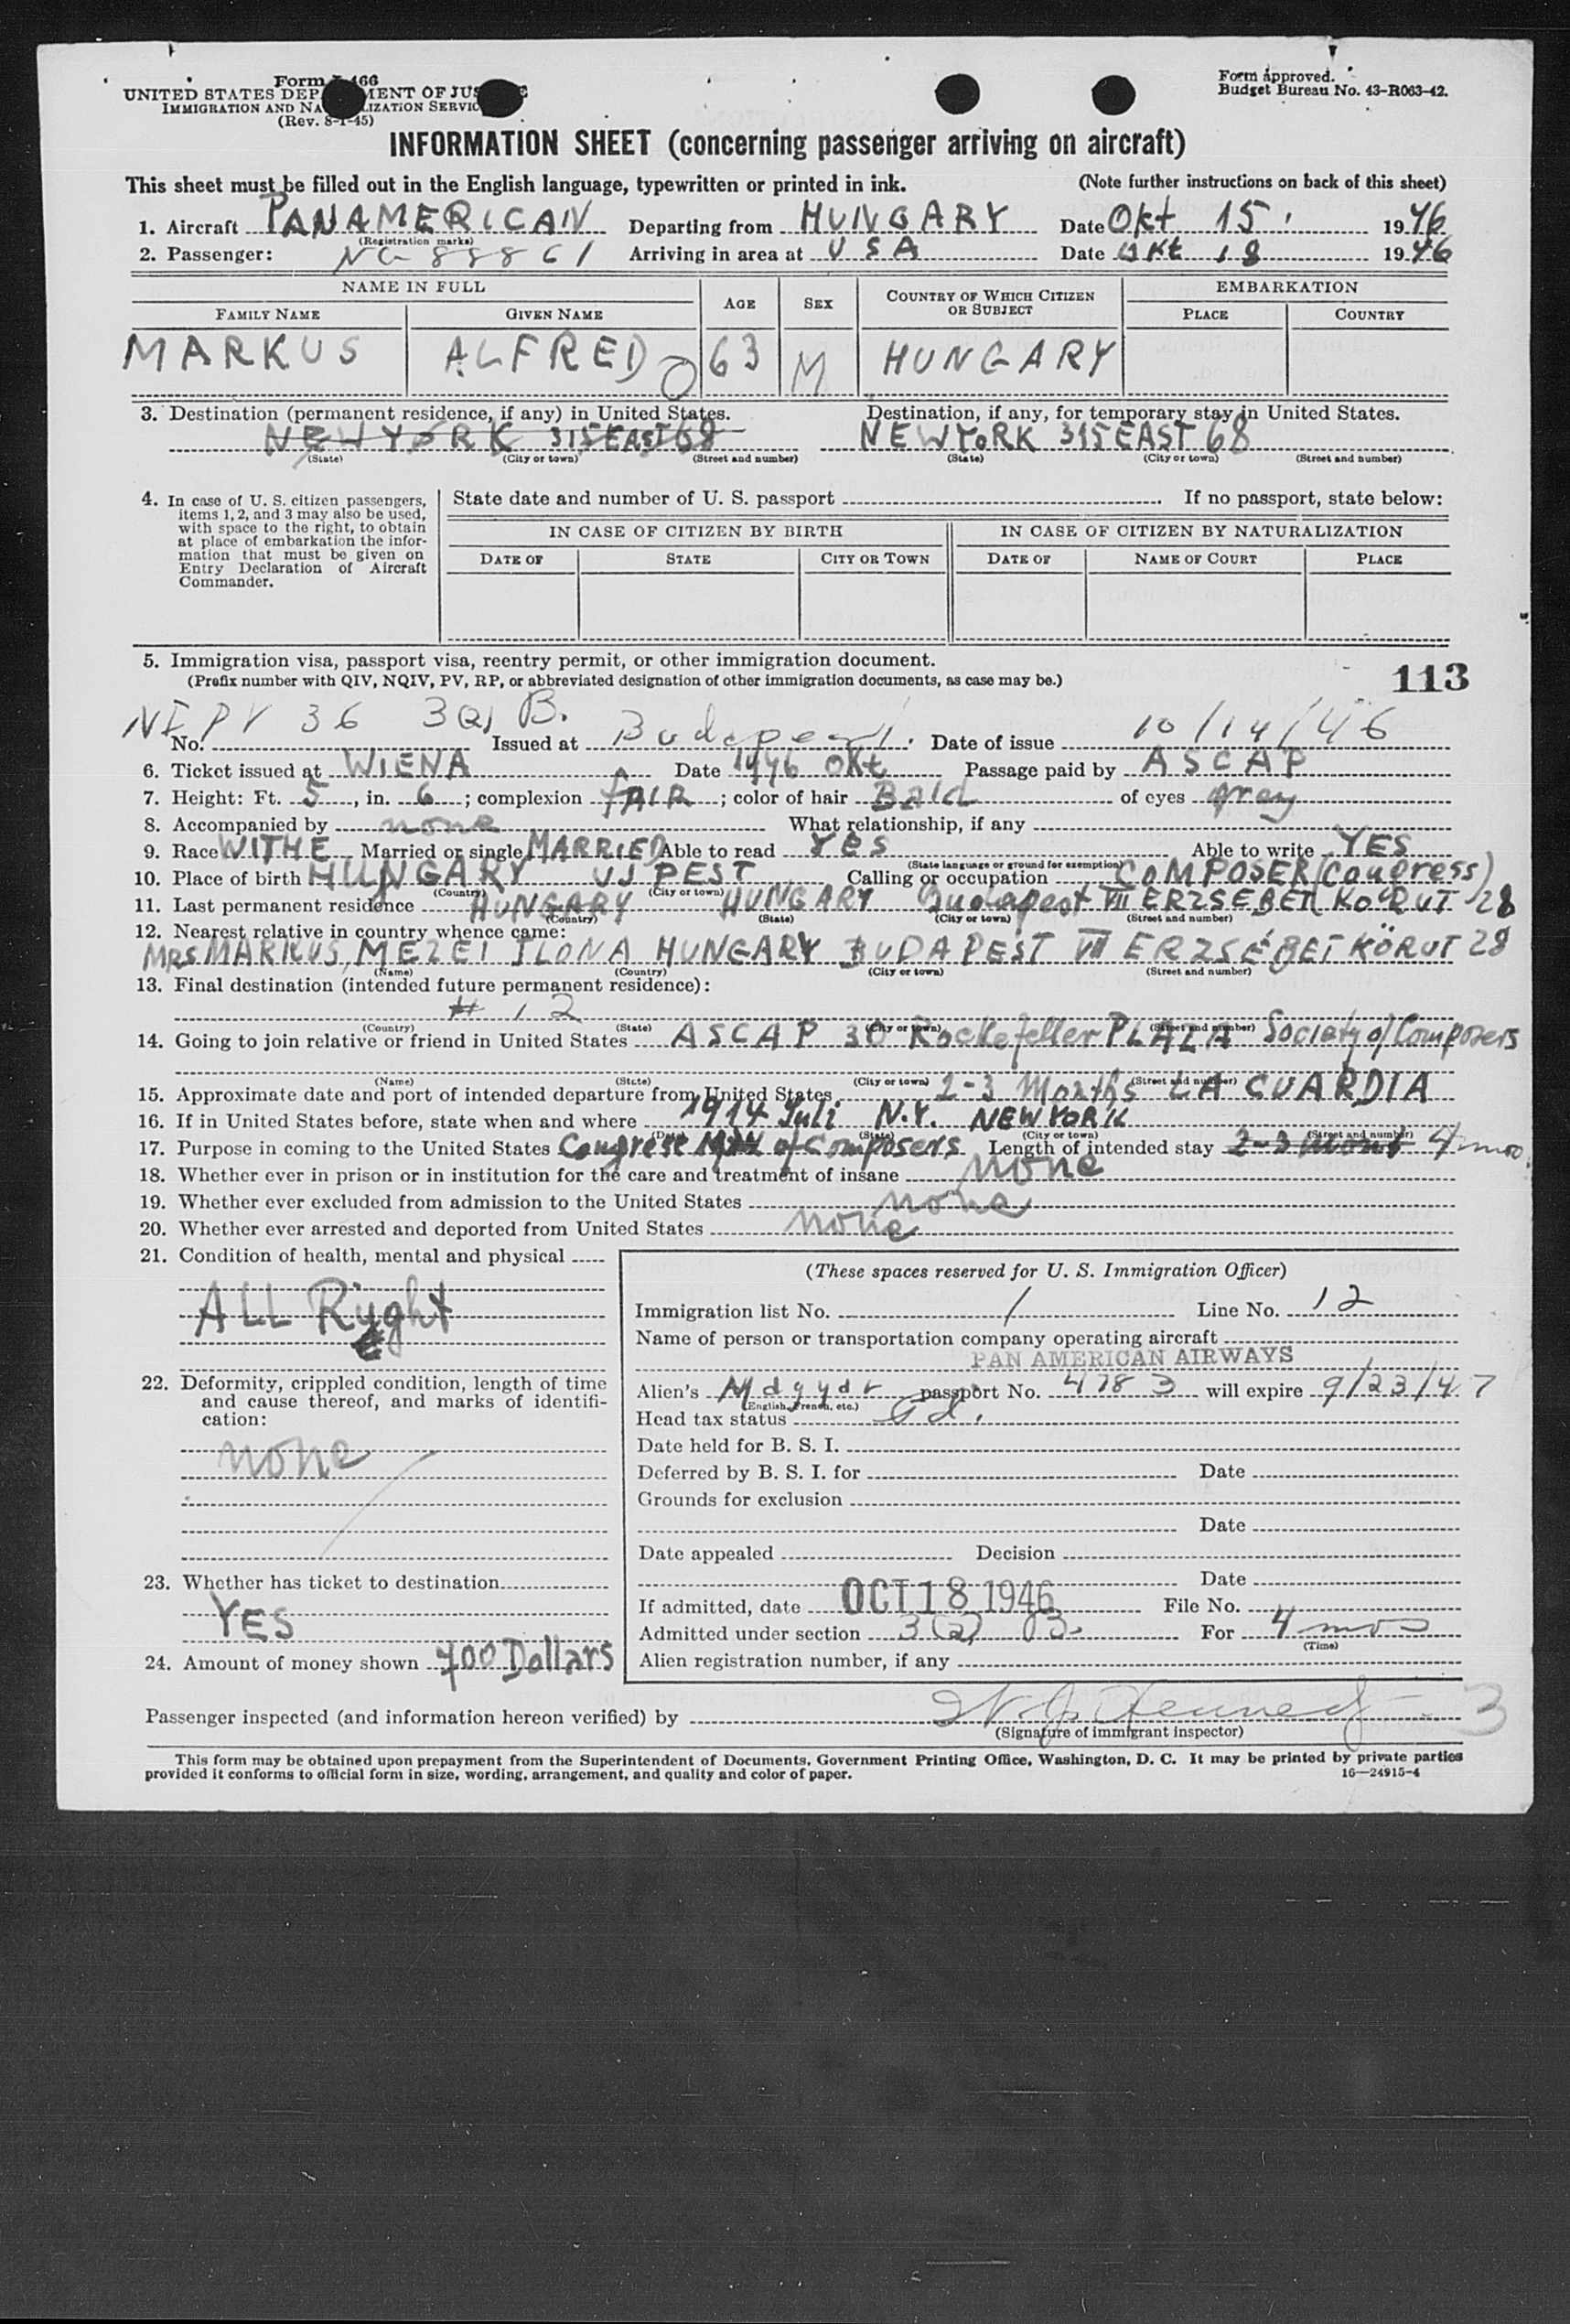 Form I-466
UNITED STATES DEPARTMENT OF JUSTICE
IMMIGRATION AND NATURALIZATION SERVICE
(Rev. 8-1-45)
Form approved.
Budget Bureau No. 43-R063-42.
INFORMATION SHEET (concerning passenger arriving on aircraft)
This sheet must be filled out in the English language, typewritten or printed in ink. (Note further instructions on back of this sheet)
1. Aircraft PANAMERICAN Departing from HUNGARY Date Okt 15. 1946
(Registration marks)
2. Passenger: NC 88861 Arriving in area at USA Date Okt 18 1946
NAME IN FULL AGE SEX COUNTRY OF WHICH CITIZEN OR SUBJECT EMBARKATION
FAMILY NAME GIVEN NAME PLACE COUNTRY
MARKUS ALFRED 63 M HUNGARY
3. Destination (permanent residence, if any) in United States. Destination, if any, for temporary stay in United States.
NEW YORK 315 EAST 68 NEW YORK 315 EAST 68
(State) (City or town) (Street and number) (State) (City or town) (Street and number)
4. In case of U. S. citizen passengers, items 1, 2, and 3 may also be used, with space to the right, to obtain at place of embarkation the information that must be given on Entry Declaration of Aircraft Commander.
State date and number of U. S. passport If no passport, state below:
IN CASE OF CITIZEN BY BIRTH IN CASE OF CITIZEN BY NATURALIZATION
DATE OF STATE CITY OR TOWN DATE OF NAME OF COURT PLACE
5. Immigration visa, passport visa, reentry permit, or other immigration document.
(Prefix number with QIV, NQIV, PV, RP, or abbreviated designation of other immigration documents, as case may be.)
113
No. PV 36 3(2) B. Issued at Budapest. Date of issue 10/14/46
6. Ticket issued at WIENA Date 1946 Okt Passage paid by ASCAP
7. Height: Ft. 5, in. 6; complexion FAIR; color of hair Bald of eyes gray
8. Accompanied by none What relationship, if any
9. Race WITHE Married or single MARRIED Able to read Yes Able to write YES
(State language or ground for exemption)
10. Place of birth HUNGARY UJPEST Calling or occupation COMPOSER (Congress)
(Country) (City or town)
11. Last permanent residence HUNGARY HUNGARY Budapest VII ERZSEBET KORUT 28
(Country) (State) (City or town) (Street and number)
12. Nearest relative in country whence came:
MRS MARKUS, MEZEI ILONA HUNGARY BUDAPEST VII ERZSÉBET KÖRUT 28
(Name) (Country) (City or town) (Street and number)
13. Final destination (intended future permanent residence):
# 12
(Country) (State) (City or town) (Street and number)
14. Going to join relative or friend in United States ASCAP 30 Rockefeller PLAZA Society of Composers
(Name) (State) (City or town) (Street and number)
15. Approximate date and port of intended departure from United States 2-3 Months LA GUARDIA
16. If in United States before, state when and where 1914 Juli N.Y. NEW YORK
(Date) (State) (City or town) (Street and number)
17. Purpose in coming to the United States Congrese of Composers Length of intended stay 2-3 mont 4 mos.
18. Whether ever in prison or in institution for the care and treatment of insane none
19. Whether ever excluded from admission to the United States none
20. Whether ever arrested and deported from United States none
21. Condition of health, mental and physical
ALL Ryght
22. Deformity, crippled condition, length of time and cause thereof, and marks of identification:
none
23. Whether has ticket to destination
YES
24. Amount of money shown 700 Dollars
(These spaces reserved for U. S. Immigration Officer)
Immigration list No. 1 Line No. 12
Name of person or transportation company operating aircraft
PAN AMERICAN AIRWAYS
Alien's Magyar passport No. 4783 will expire 9/23/47
(English, French, etc.)
Head tax status Pd.
Date held for B. S. I.
Deferred by B. S. I. for Date
Grounds for exclusion
Date
Date appealed Decision
Date
If admitted, date OCT 18 1946 File No.
Admitted under section 3(2) B. For 4 mos
(Time)
Alien registration number, if any
Passenger inspected (and information hereon verified) by Kennedy 3
(Signature of immigrant inspector)
This form may be obtained upon prepayment from the Superintendent of Documents, Government Printing Office, Washington, D. C. It may be printed by private parties
provided it conforms to official form in size, wording, arrangement, and quality and color of paper. 16—24915-4